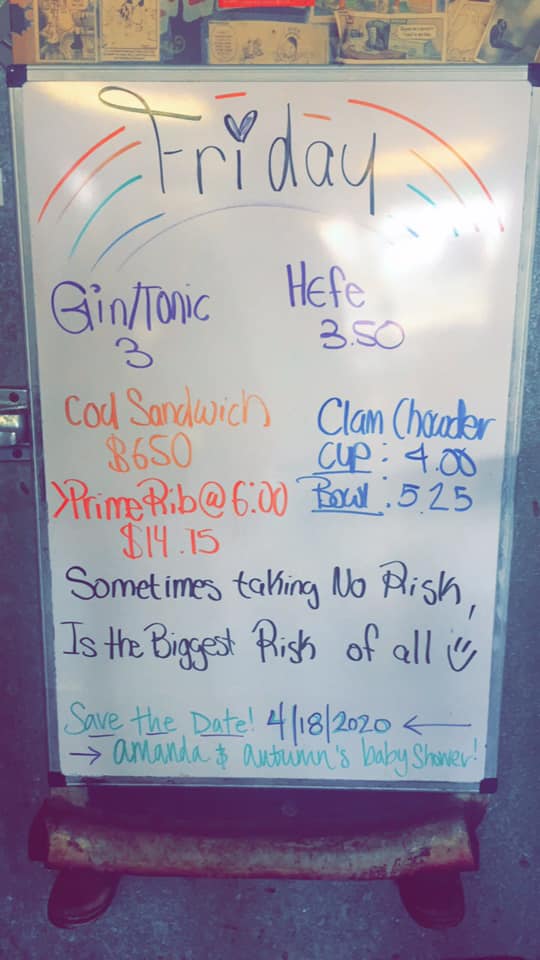 Friday
Gin/Tonic
3
Hefe
3.50
Cod Sandwich
$650
Clam Chowder
Cup: 4.00
Bowl: 5.25
>Prime Rib @ 6:00
$14.75
Sometimes taking No Risk,
Is the Biggest Risk of all
Save the Date! 4/18/2020 ←
→ amanda & autumn's baby shower!